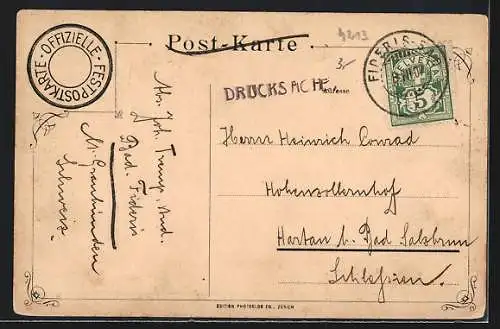 OFFIZIELLE · FESTPOSTKARTE
Post-Karte
4213
3/-
DRUCKSACHE
FIDERIS-
HELVETIA
5
Herrn Heinrich Conrad
Hohenzollernhof
Hartau b. Bad Salzbrunn
Schlesien.
Abs. Joh. Trump, And.
Bad. Fideris
Kt. Graubünden
Schweiz
EDITION PHOTOGLOB CO., ZÜRICH